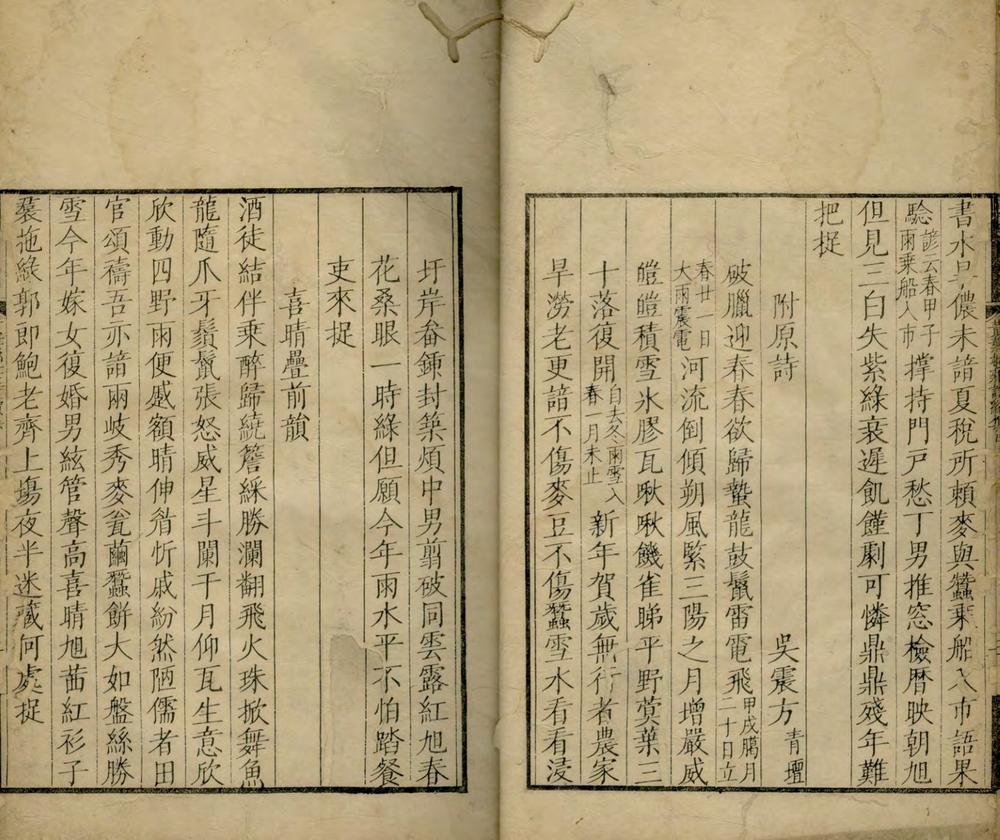 書水旱儂未諳夏稅所賴麥與蠶乘船入市語果
驗諺云春甲子雨乘船入市撑持門戸愁丁男推窓檢曆映朝旭
但見三白失紫綠衰遲飢饉劇可憐鼎鼎殘年難
把捉
附原詩
吳震方青壇
破臘迎春春欲歸蟄龍鼓鬣雷電飛甲戌臈月二十日立
春廿一日大雨震電河流倒傾朔風緊三陽之月增嚴威
皚皚積雪氷膠瓦啾啾饑雀睇平野蓂葉三
十落復開自去冬雨雪入春一月未止新年賀歲無行者農家
旱澇老更諳不傷麥豆不傷蠶雪水看看浸
圩岸畚鍤封築煩中男翦破同雲露紅旭春
花桑眼一時綠但願今年雨水平不怕踏餐
吏來捉
喜晴疊前韻
酒徒結伴乘醉歸繞簷綵勝瀾翻飛火珠掀舞魚
龍隨爪牙鬚鬣張怒威星斗闌干月仰瓦生意欣
欣動四野雨便蹙額晴伸眉忻戚紛然陋儒者田
官頌禱吾亦諳兩岐秀麥瓮繭蠶餅大如盤絲勝
雪今年嫁女復婚男絃管聲高喜晴旭茜紅衫子
裠拖綠郭郎鮑老齊上塲夜半迷藏何處捉